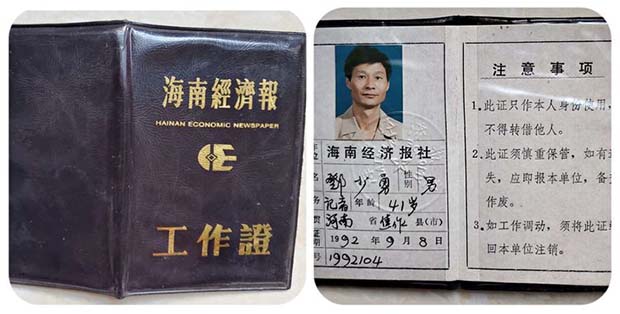 海南經濟報
HAINAN ECONOMIC NEWSPAPER
工作證
海南经济报社
鄧少勇 性别 男
记者 年龄 41岁
河南 省 焦作 县(市)
1992年9月8日
号 1992104
注意事项
1.此证只作本人身份使用,
不得转借他人。
2.此证须慎重保管,如有
失,应即报本单位,备
作废。
3.如工作调动,须将此证
回本单位注销。